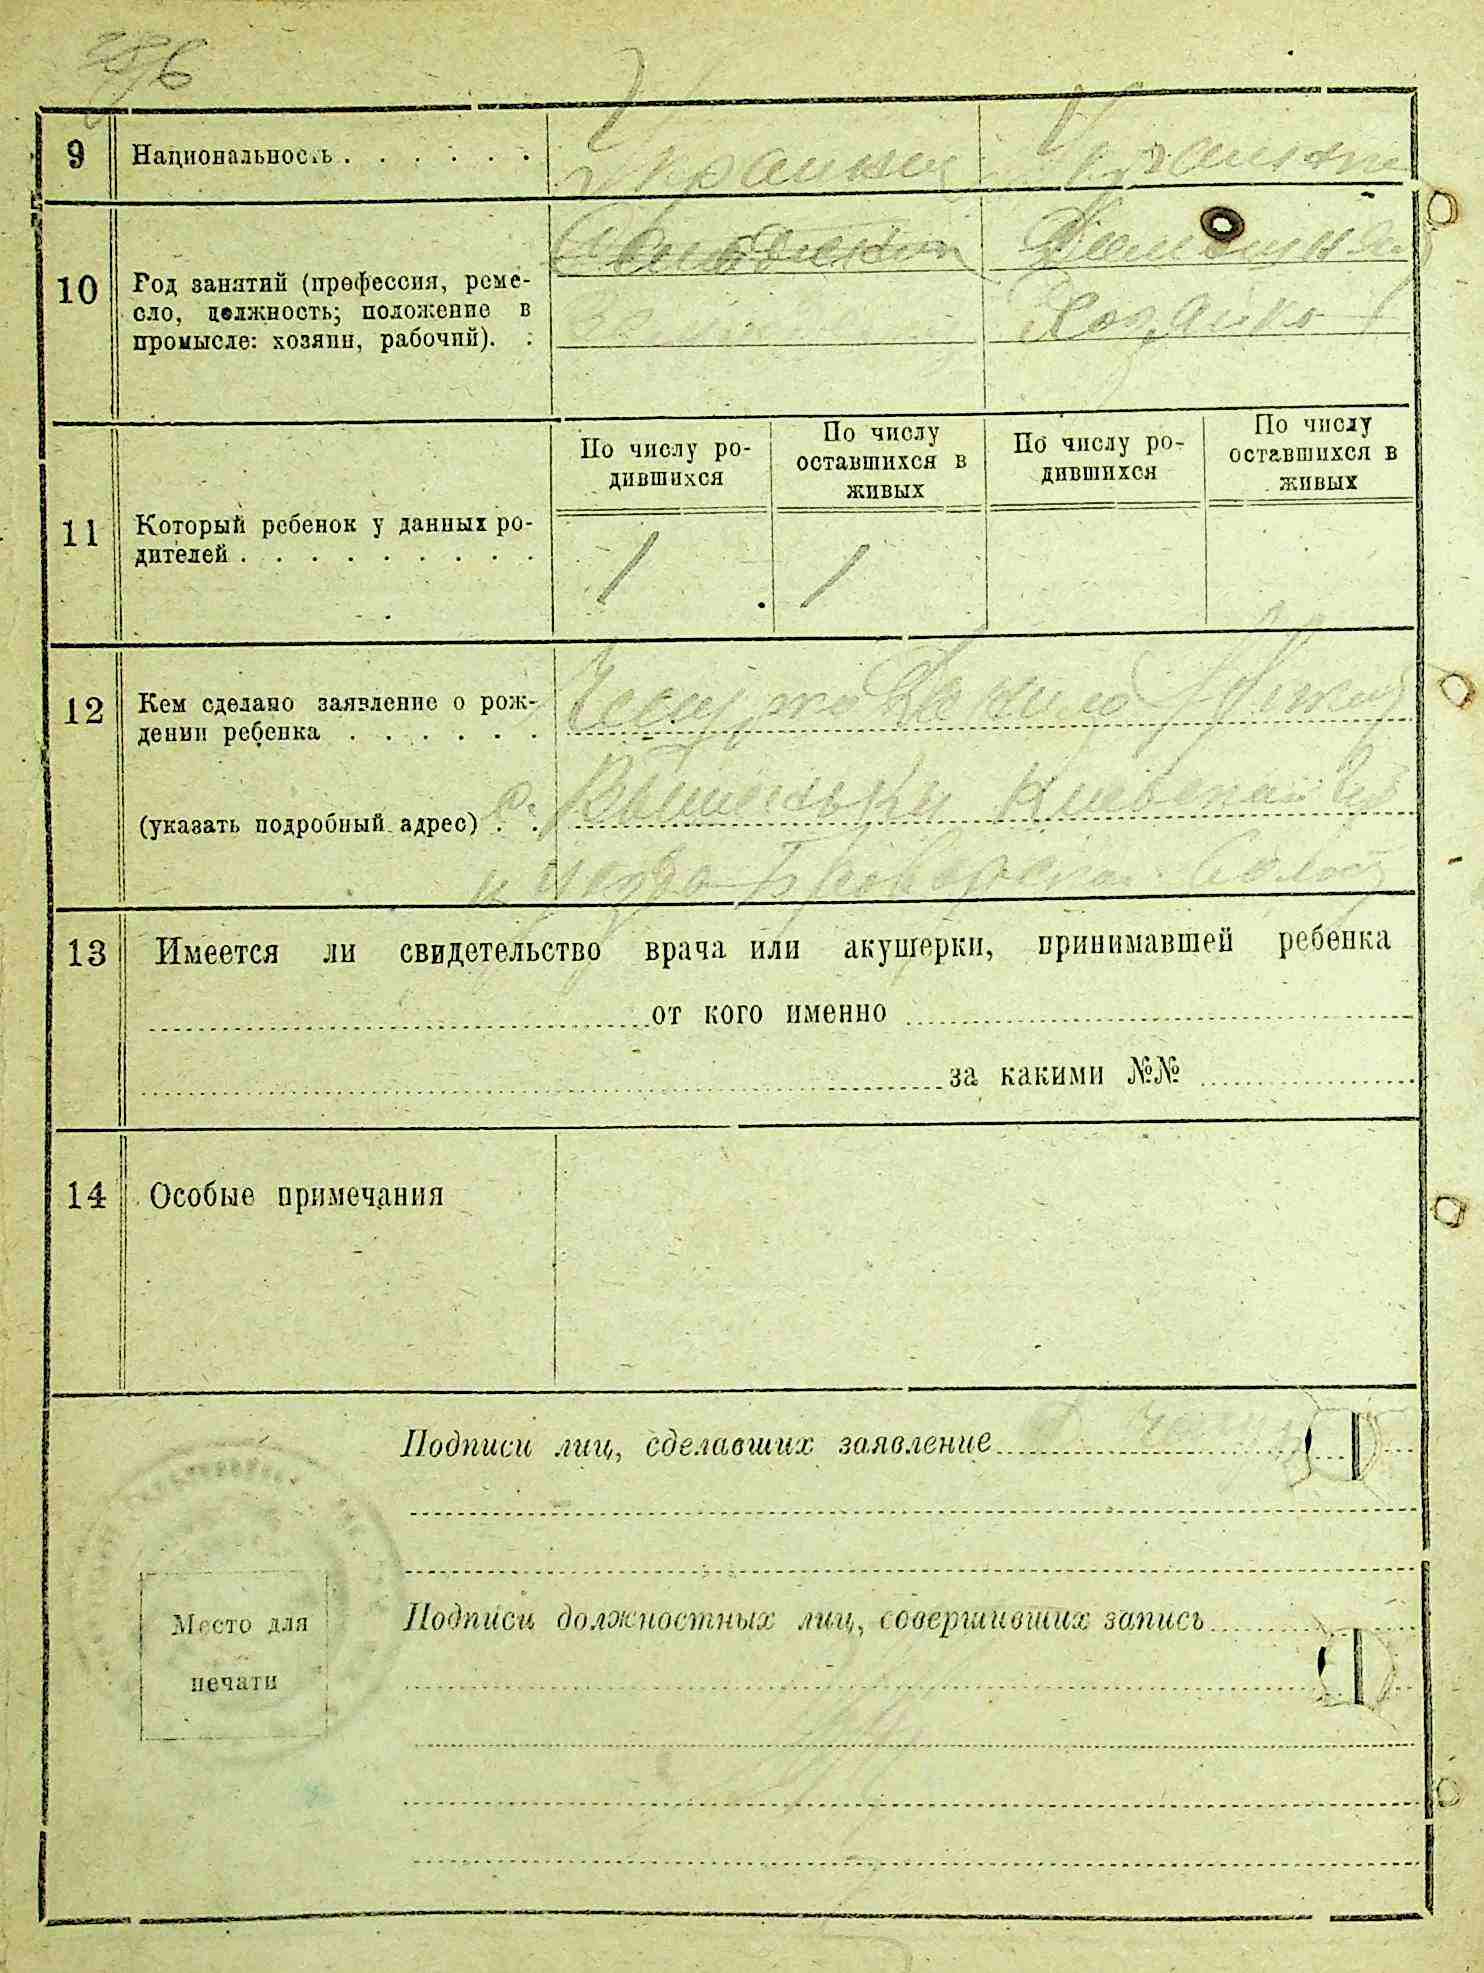 9 Национальность . . . . . . Украинец Украинка
10 Род занятий (профессия, реме-
сло, должность; положение в
промысле: хозяин, рабочий). : Домашняя
Хозяйка
По числу ро-
дившихся
По числу
оставшихся в
живых
По числу ро-
дившихся
По числу
оставшихся в
живых
11 Который ребенок у данных ро-
дителей . . . . . . . . . 1 1
12 Кем сделано заявление о рож-
дении ребенка . . . . . .
(указать подробный адрес) . . с. Вишеньки Киевской Губ
и уезда Броварской волост
13 Имеется ли свидетельство врача или акушерки, принимавшей ребенка
от кого именно
за какими №№
14 Особые примечания
Подписи лиц, сделавших заявление
Подписи должностных лиц, совершивших запись
Место для
печати